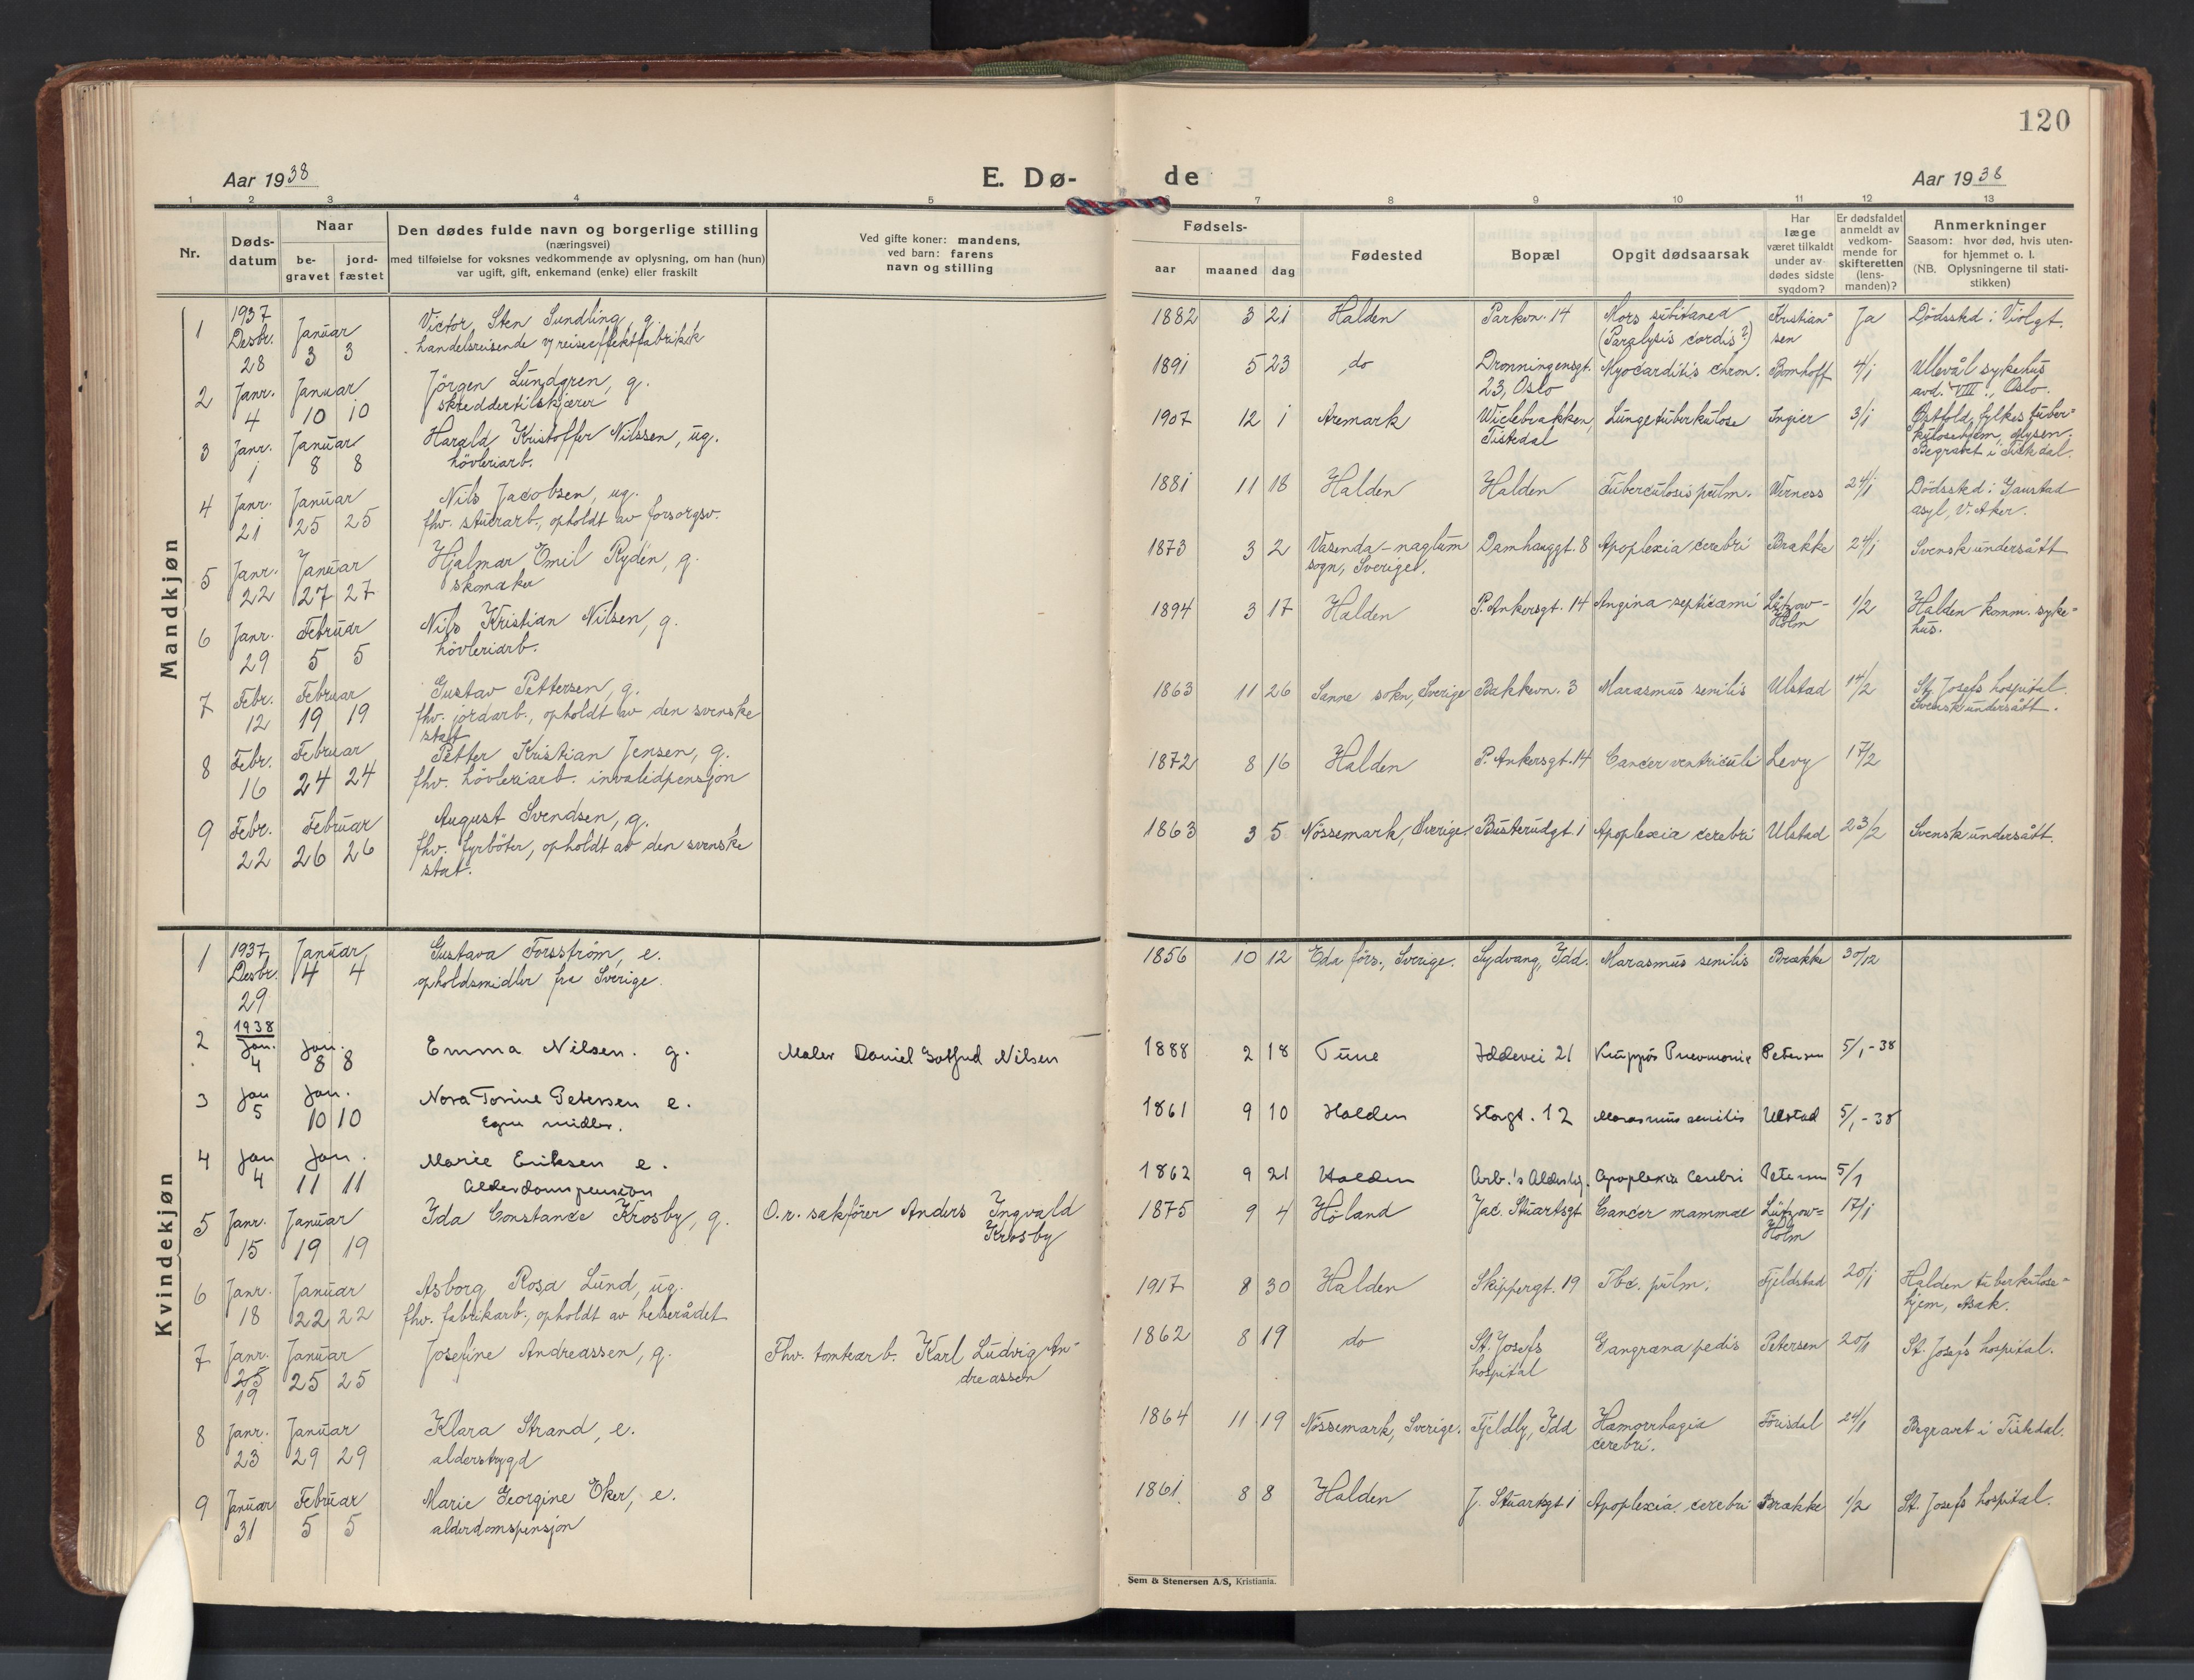 120
Aar 1938
E. Dø-
de
Aar 1938
1 2 3 4 5 7 8 9 10 11 12 13
Nr.
Døds-
datum
Naar
be-
gravet
jord-
fæstet
Den dødes fulde navn og borgerlige stilling
(næringsvei)
med tilføielse for voksnes vedkommende av oplysning, om han (hun)
var ugift, gift, enkemand (enke) eller fraskilt
Ved gifte koner: mandens,
ved barn: farens
navn og stilling
Fødsels-
aar
maaned
dag
Fødested
Bopæl
Opgit dødsaarsak
Har
læge
været tilkaldt
under av-
dødes sidste
sygdom?
Er dødsfaldet
anmeldt av
vedkom-
mende for
skifteretten
(lens-
manden)?
Anmerkninger
Saasom: hvor død, hvis uten-
for hjemmet o. l.
(NB. Oplysningerne til stati-
stikken)
Mandkjøn
1 1937 Desbr. 28 Januar 3 3 Victor Sten Sundling, g.
handelsreisende v/ reiseeffektfabrikk
1882 3 21 Halden Parkvn. 14 Mors subitanea
(Paralysis cordis?) Kristian-
sen Ja Dödsskd i Violgt.
2 Janr. 4 Januar 10 10 Jörgen Lundgren, g.
skreddertilskjærer
1891 5 23 do Dronningensgt.
23, Oslo Myocarditis chron. Bomhoff 4/1 Ullevål sykehus
avd. VIII, Oslo.
3 Janr. 1 Januar 8 8 Harald Kristoffer Nilssen, ug.
hövleriarb.
1907 12 1 Aremark Wielebakken,
Tistedal Lungetuberkulose Ingier 3/1 Østfold fylkes tuber-
kulosehjem,
Begravet i Tistedal.
4 Janr. 21 Januar 25 25 Nils Jacobsen, ug.
fhv. stuerarb., opholdt av forsorgsv.
1881 11 18 Halden Halden Tuberculosis pulm. Werness 24/1 Dödsskd i Gaustad
asyl, V. Aker.
5 Janr. 22 Januar 27 27 Hjalmar Emil Rydén, g.
skomaker
1873 3 2 Vasenda-naglum
sogn, Sverige. Damhauggt. 8 Apoplexia cerebri Brække 24/1 Svensk undersått
6 Janr. 29 Februar 5 5 Nils Kristian Nilsen, g.
hövleriarb.
1894 3 17 Halden P. Ankersgt. 14 Angina septicæmi Lützow-
Holm 1/2 Halden komm. syke-
hus.
7 Febr. 12 Februar 19 19 Gustav Pettersen, g.
fhv. jordarb., opholdt av den svenske
stat
1863 11 26 Sanne sokn, Sverige Bakkevn. 3 Marasmus senilis Ulstad 14/2 St. Josefs hospital.
Svensk undersått.
8 Febr. 16 Februar 24 24 Petter Kristian Jensen, g.
fhv. hövleriarb. invalidpensjon
1872 8 16 Halden P. Ankersgt. 14 Cancer ventriculi Levy 17/2
9 Febr. 22 Februar 26 26 August Svendsen, g.
fhv. fyrböter, opholdt av den svenske
stat.
1863 3 5 Nössemark, Sverige. Busterudgt 1 Apoplexia cerebri Ulstad 23/2 Svensk undersått.
Kvindekjøn
1 1937 Desbr. 29 Januar 4 4 Gustava Forsström, e.
opholdsmidler fra Sverige.
1856 10 12 Eda förs., Sverige. Sydvang, Idd. Marasmus senilis Brække 30/12
2 1938 Jan. 4 Jan. 8 8 Emma Nilsen. g. Maler Daniel Gotfred Nilsen
1888 2 18 Tune Iddevei 21 Kruppös Pneumonie Petersen 5/1-38
3 Jan 5 Jan. 10 10 Nora Torine Petersen e.
Egne midler.
1861 9 10 Halden Storgt. 12 Marasmus senilis Ulstad 5/1-38
4 Jan 4 Jan. 11 11 Marie Eriksen e.
Alderdomspension
1862 9 21 Halden Arb.'s Alderhj. Apoplexia Cerebri Petersen 5/1
5 Janr. 15 Januar 19 19 Ida Constance Krosby, g. O.r. sakförer Anders Ingvald
Krosby
1875 9 4 Höland Jac. Stuartsgt Cancer mammae Lützow-
Holm 17/1
6 Janr. 18 Januar 22 22 Asborg Rosa Lund, ug.
fhv. fabrikarb., opholdt av helserådet
1917 8 30 Halden Skippergt. 19 Tbc. pulm. Fjeldstad 20/1 Halden tuberkulose-
hjem, Asak.
7 Janr. 25 19 Januar 25 25 Josefine Andreassen, g. Fhv. tomtearb. Karl Ludvig An-
dreassen
1862 8 19 do St. Josefs
hospital Gangræna pedis Petersen 20/1 St. Josefs hospital.
8 Janr. 23 Januar 29 29 Klara Strand, e.
alderstrygd
1864 11 19 Nössemark, Sverige. Fjeldly, Idd Hæmorrhagia
cerebri. 24/1 Begravet i Tistedal.
9 Januar 31 Februar 5 5 Marie Georgine Eker, e.
alderdomspensjon
1861 8 8 Halden J. Stuartsgt 1 Apoplexia cerebri Brække 1/2 St. Josefs hospital.
Sem & Stenersen A/S, Kristiania.